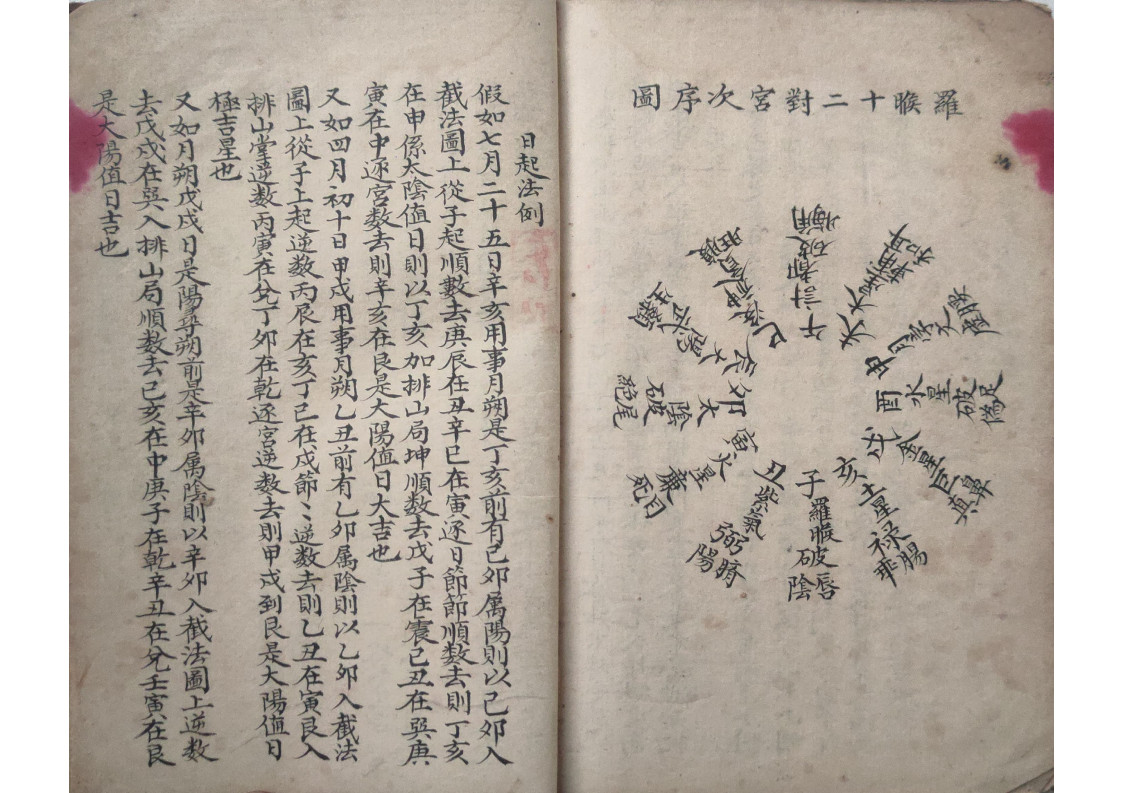 羅睺十二對宮次序圖
子 羅睺 破 唇 陰
丑 紫氣 弼 臍 陽
寅 火星 廉 目 死
卯 太陰 破 絕 尾
辰 太陽 武
巳
午 計都 破
未 火
申 月孛 文
酉 水星 破 足
戌 金星 巨 鼻
亥 土星 禄 腸
日起法例
假如七月二十五日辛亥用事月朔是丁亥前有己夘属陽則以己夘入
截法圖上從子起順數去庚辰在丑辛巳在寅逐日節節順數去則丁亥
在申係太陰值日則以丁亥加排山局坤順数去戊子在震己丑在巽庚
寅在中逐宮数去則辛亥在艮是大陽值日大吉也
又如四月初十日甲戌用事月朔乙丑前有乙夘属陰則以乙夘入截法
圖上從子上起逆数丙辰在亥丁巳在戌節〻逆数去則乙丑在寅艮入
排山掌逆数丙寅在兌丁夘在乾逐宮逆数去則甲戌到艮是大陽值日
極吉星也
又如月朔戊戌日是陽尋朔前是辛夘属陰則以辛夘入截法圖上逆数
去戊戌在巽入排山局順数去己亥在中庚子在乾辛丑在兌壬寅在艮
是大陽值日吉也